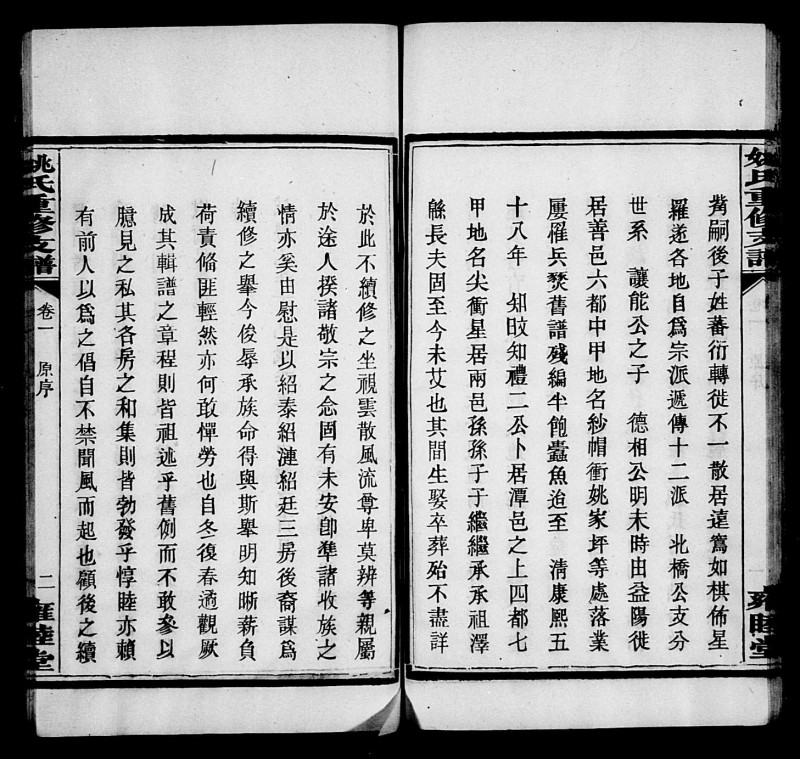 姚氏重修支譜
觜嗣後子姓蕃衍轉徙不一散居遠鶩如棋佈星
羅遂各地自爲宗派遞傳十二派 北橋公支分
世系 讓能公之子 德相公明末時由益陽徙
居善邑六都中甲地名紗帽衝姚家坪等處落業
屢罹兵燹舊譜殘編半飽蠹魚迨至 淸康熙五
十八年 知旼知禮二公卜居潭邑之上四都七
甲地名尖衝星居兩邑孫孫子子繼繼承承祖澤
緜長夫固至今未艾也其間生娶卒葬殆不盡詳
雍睦堂
於此不續修之坐視雲散風流尊卑莫辨等親屬
於途人揆諸敬宗之念固有未安卽準諸收族之
情亦奚由慰是以紹泰紹漣紹廷三房後裔謀爲
續修之舉今俊辱承族命得與斯舉明知晰薪負
荷責脩匪輕然亦何敢憚勞也自冬復春遹觀厥
成其輯譜之章程則皆祖述乎舊例而不敢參以
臆見之私其各房之和集則皆勃發乎惇睦亦賴
有前人以爲之倡自不禁聞風而起也顧後之續
姚氏重修支譜
卷一 原序
二
雍睦堂